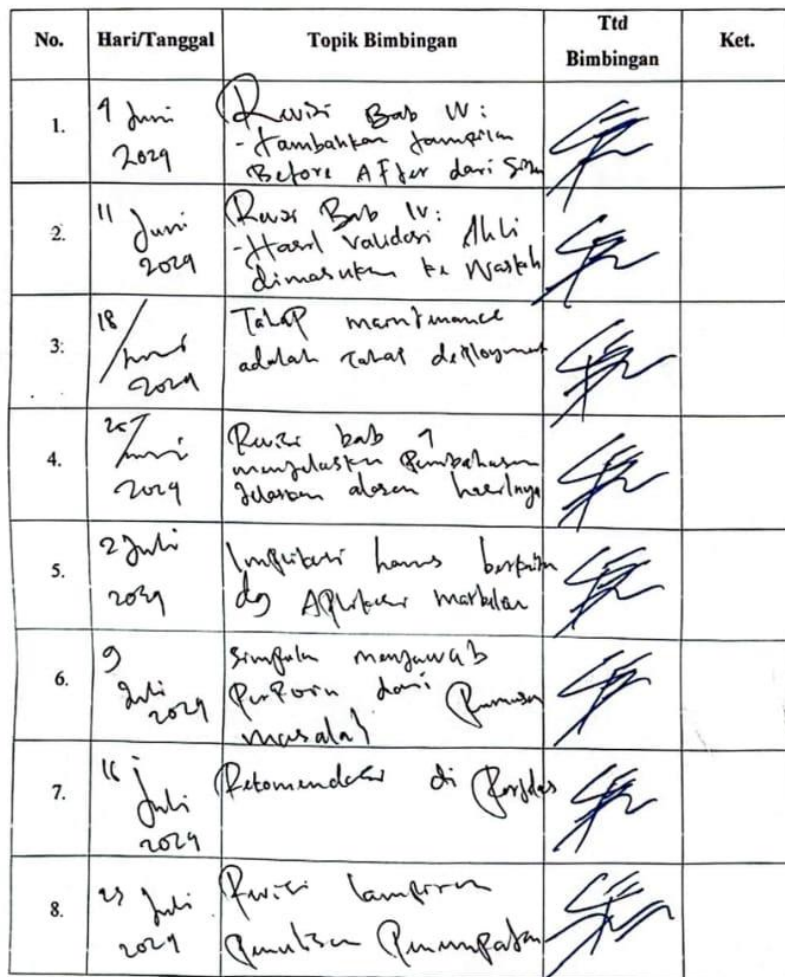 No. Hari/Tanggal Topik Bimbingan Ttd Bimbingan Ket.
1. 4 Juni 2024 Revisi Bab IV:
- Tambahkan tampilan
Before After dari
2. 11 Juni 2024 Revisi Bab IV:
- Hasil validasi Ahli
dimasukan ke Naskah
3. 18 Juni 2024 Tahap maintenance
adalah tahap deployment
4. Juni 2024 Revisi bab
menjelaskan Pembahasan
Jelaskan alasan hasilnya
5. 2 Juli 2024 Implikasi harus berkaitan
dg Aplikasi
6. 9 Juli 2024 Simpulan menjawab
PerPoin dari Rumusan
masalah
7. 16 Juli 2024 Rekomendasi di Perjelas
8. 23 Juli 2024 Revisi lampiran
Penulisan Penempatan